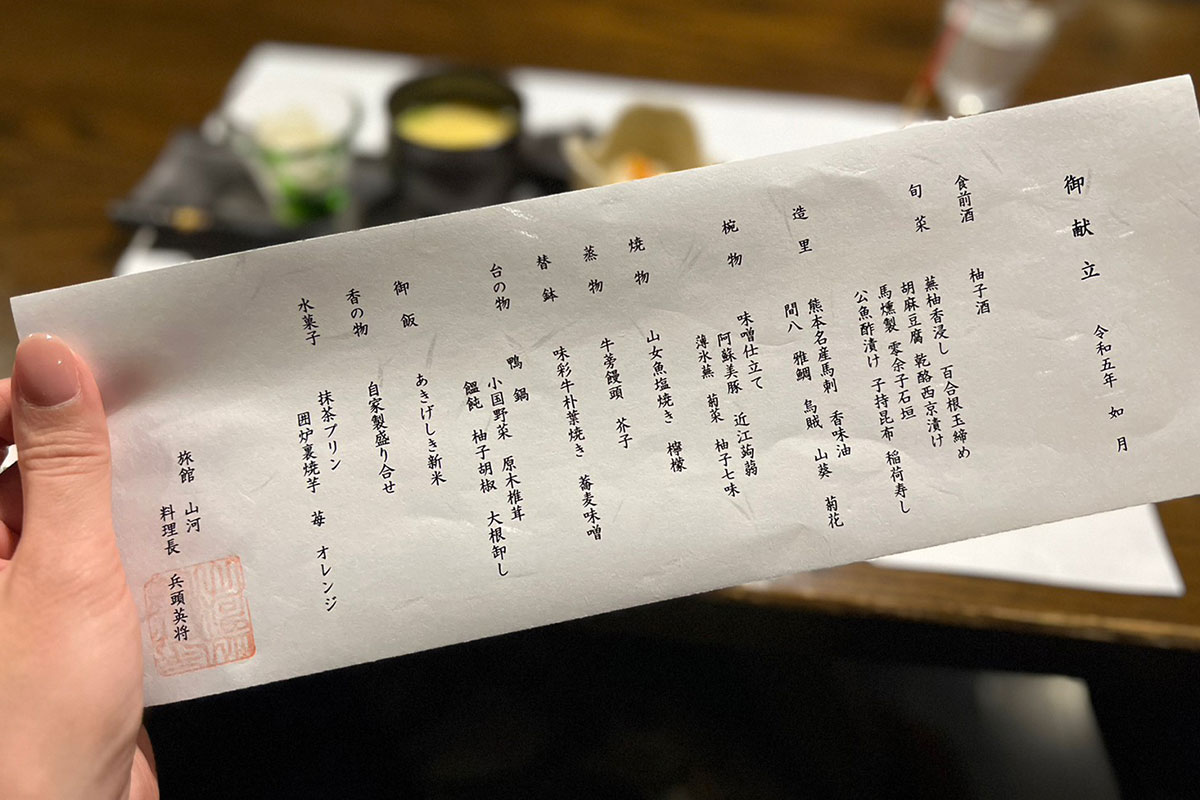 御献立
令和五年 如月
食前酒 柚子酒
旬菜 蕪柚香浸し 百合根玉締め
胡麻豆腐 乾酪西京漬け
馬燻製 零余子石垣
公魚酢漬け 子持昆布 稲荷寿し
造里 熊本名産馬刺 香味油
間八 雅鯛 烏賊 山葵 菊花
椀物 味噌仕立て
阿蘇美豚 近江蒟蒻
薄氷蕪 菊菜 柚子七味
焼物 山女魚塩焼き 檸檬
蒸物 牛蒡饅頭 芥子
替鉢 味彩牛朴葉焼き 蕎麦味噌
台の物 鴨鍋
小国野菜 原木椎茸
饂飩 柚子胡椒 大根卸し
御飯 あきげしき新米
香の物 自家製盛り合せ
水菓子 抹茶プリン
囲炉裏焼芋 苺 オレンジ
旅館 山河
料理長 兵頭英将